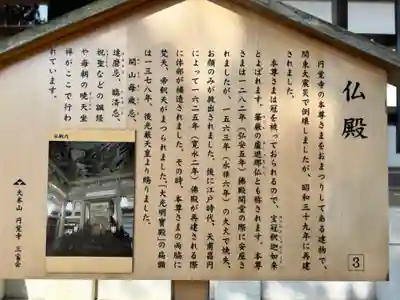 仏殿
円覚寺の本尊さまをおまつりしてある建物で、
関東大震災で倒壊しましたが、昭和三十九年に再建
されました。
本尊さまは冠を被っておられるので、宝冠釈迦如来
とよばれます。華厳の盧遮那仏とも称されます。本尊
さまは一二八二（弘安五年）佛殿開堂の際に安座さ
れましたが、一五六三（永禄六年）の大火で焼失、
お顔のみが救出されました。後に江戸時代、
によって一六二五（寛永二年）佛殿が再建される際
に体部が補造されました。その時、本尊さまの両脇に
梵天、帝釈天がまつられました。「大光明寶殿」の扁額
は一三七八年、後光厳天皇より賜りました。
開山毎歳忌、
達磨忌、臨済忌、
祝聖などの諷経
や毎朝の暁天坐
禅がここで行わ
れています。
仏殿内
大本山 円覚寺
3